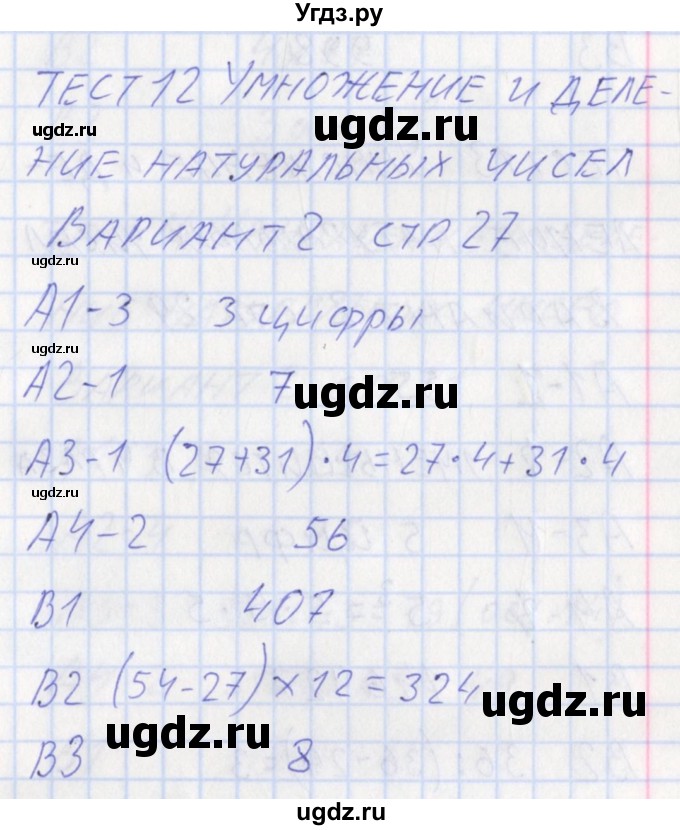 Угдз.ру
ТЕСТ 12 УМНОЖЕНИЕ И ДЕЛЕ-
ugdz.ru
ugdz.ru
НИЕ НАТУРАЛЬНЫХ ЧИСЕЛ
ВАРИАНТ 2 СТР 27
ugdz.ru
А1-3 3 цифры
ugdz.ru
А2-1 7
ugdz.ru
А3-1 (27+31)·4=27·4+31·4
ugdz.ru
А4-2 56
В1 407
В2 (54-27)×12=324
ugdz.ru
ugdz.ru
В3 8
ugdz.ru